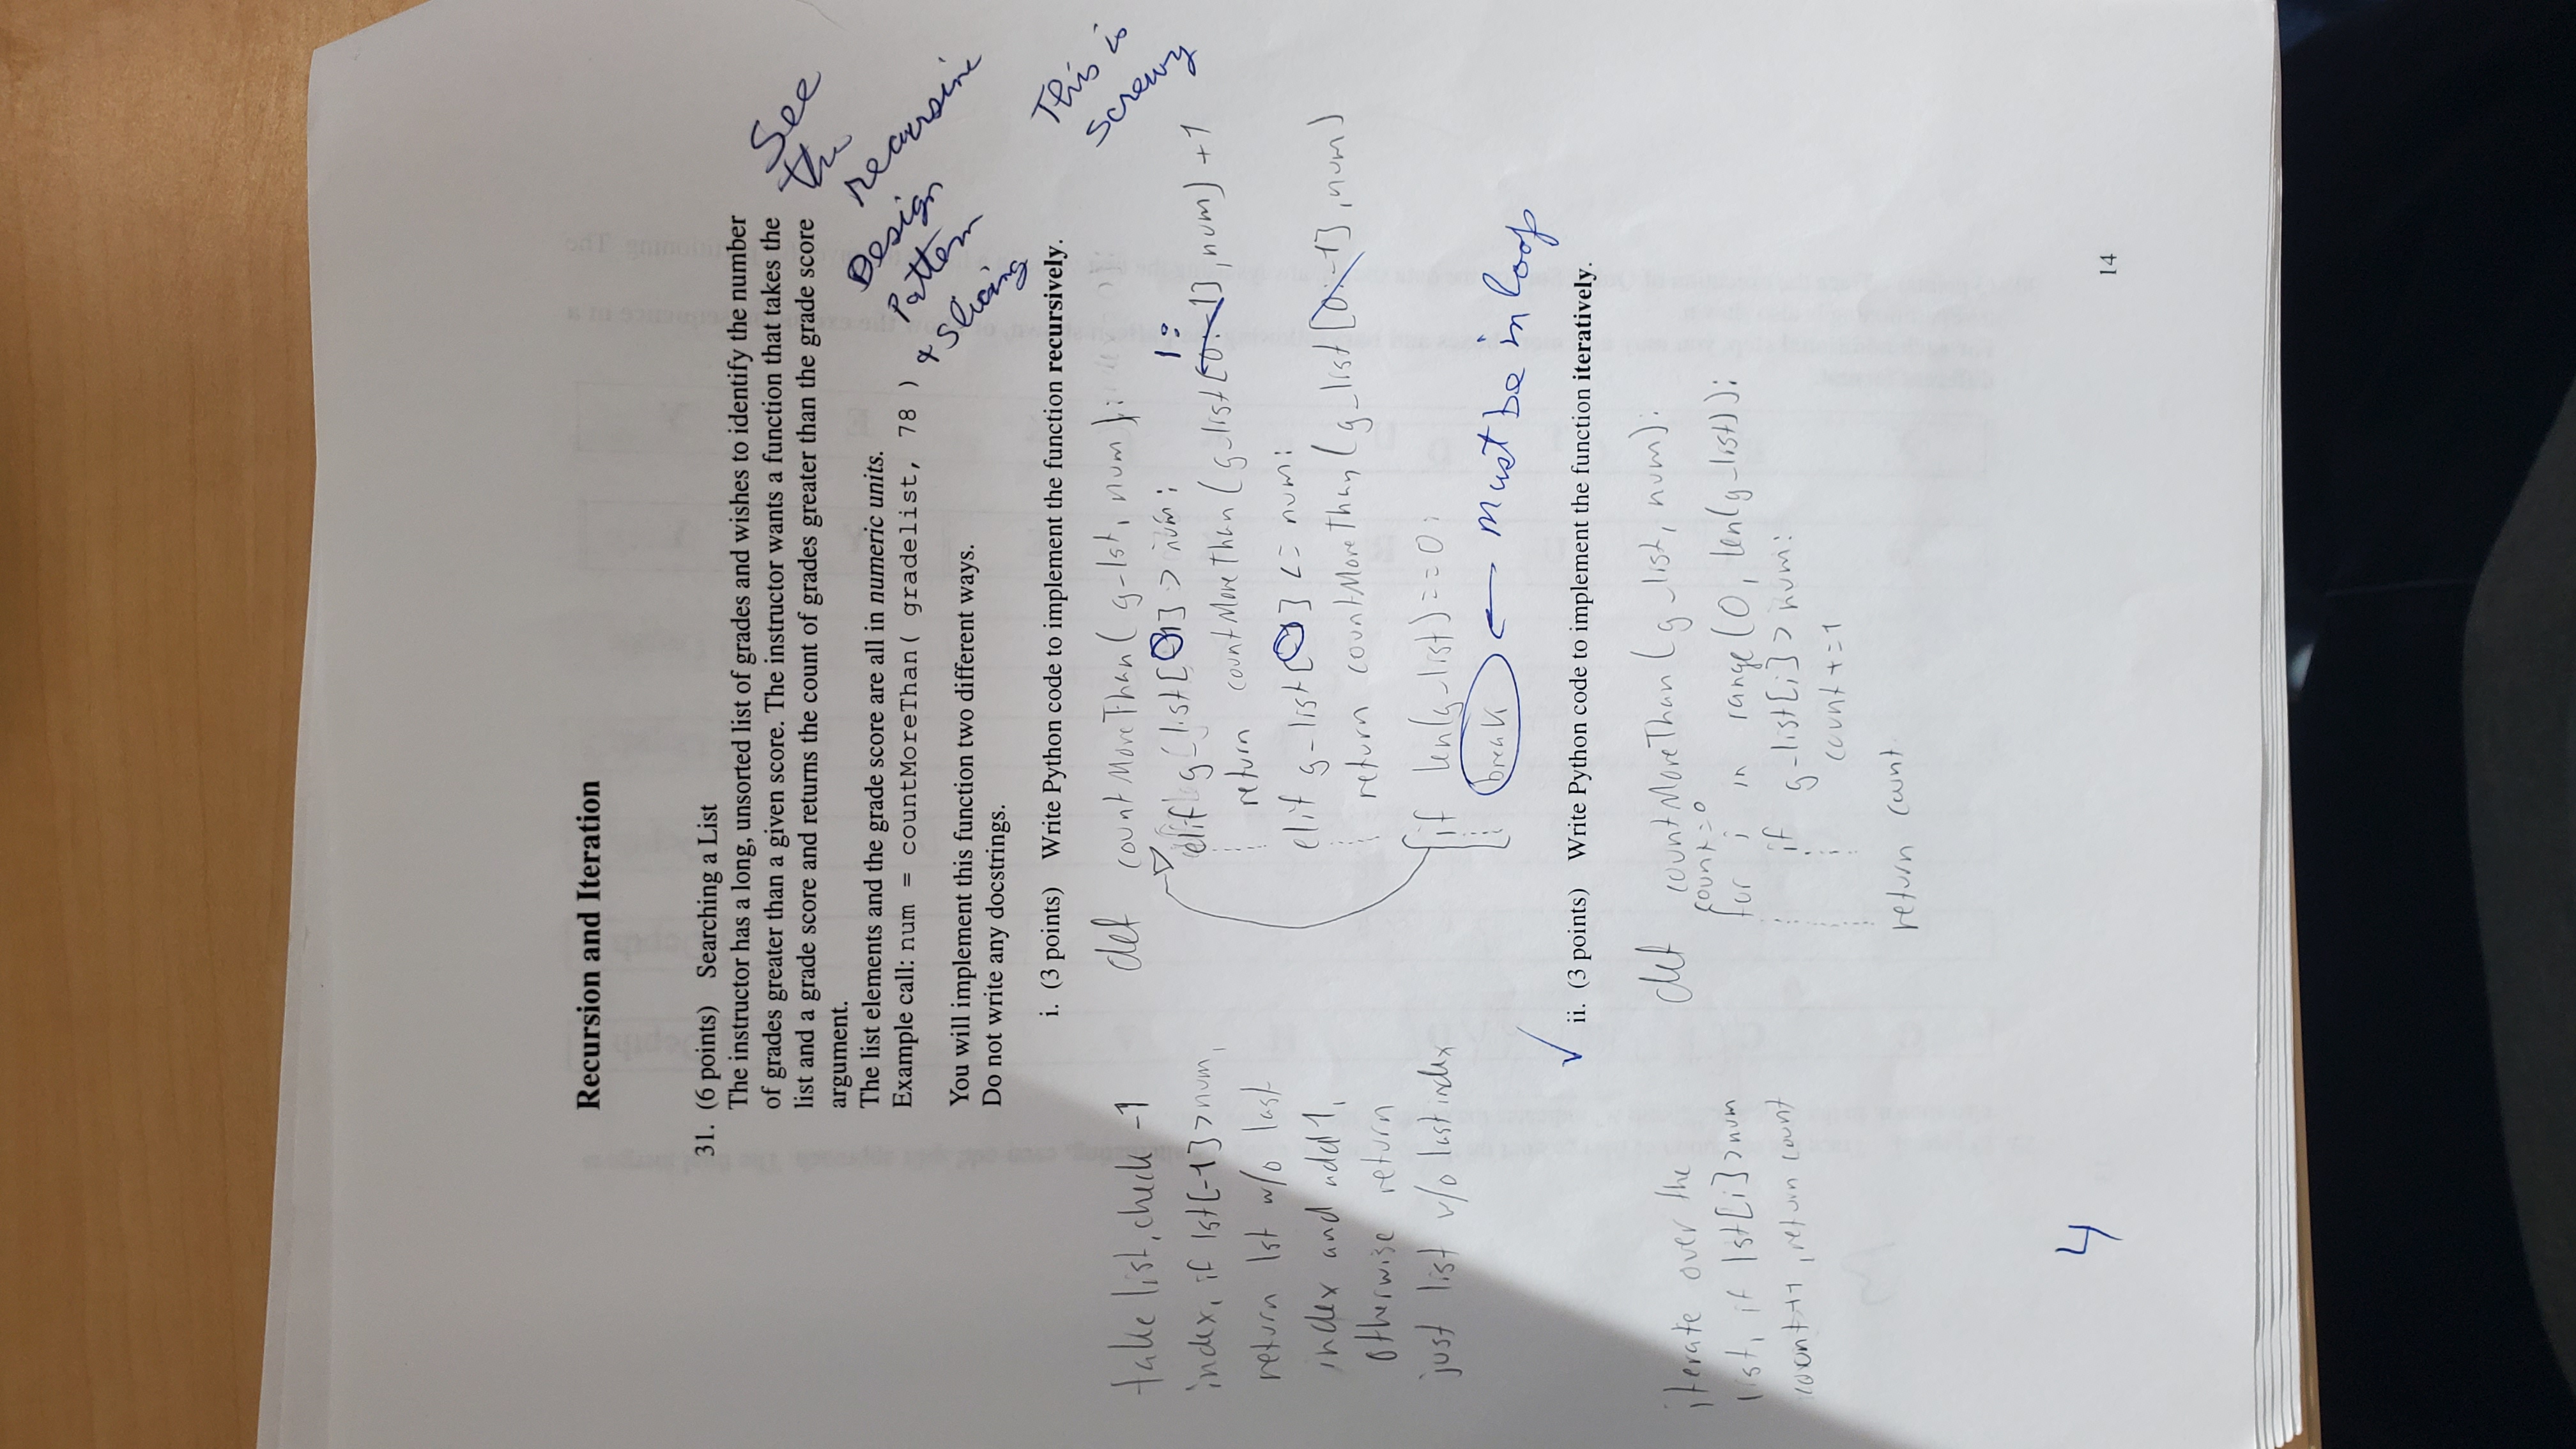 Recursion and Iteration
31. (6 points) Searching a List
The instructor has a long, unsorted list of grades and wishes to identify the number
of grades greater than a given score. The instructor wants a function that takes the
list and a grade score and returns the count of grades greater than the grade score
argument.
The list elements and the grade score are all in numeric units.
Example call: num = countMoreThan( gradelist, 78 )
You will implement this function two different ways.
Do not write any docstrings.
See
the
recursive
Design
Pattern
& Slicing
This is
screwy
i. (3 points) Write Python code to implement the function recursively.
take list, check -1
index, if lst[-1]>num,
return lst w/o last
index and add 1,
otherwise return
just list w/o last index
def countMoreThan( g-lst, num ):
elif g_list[0] > num:
1:
return countMoreThan(g_list[0:-1], num) + 1
elif g_list[0] <= num:
return countMoreThan(g_list[0:-1], num)
if len(g_list)==0:
break ← must be in loop
✓ ii. (3 points) Write Python code to implement the function iteratively.
iterate over the
list, if lst[i]>num
count++, return count
def countMoreThan(g_list, num):
count=0
for i in range(0, len(g_list)):
if g_list[i] > num:
count+=1
return count
4
14